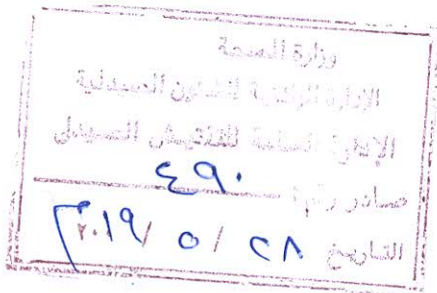 وزارة الصحة
الادارة المركزية لشئون الصيدلية
الادارة العامة للتفتيش الصيدلى
صادر رقم / ٤٩٠
التاريخ ٢٨ / ٥ / ٢٠١٩